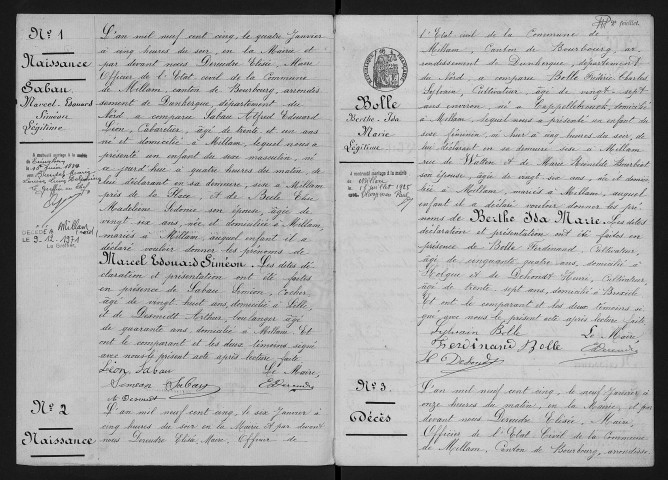 Nº 1
Naissance
Sabau
Marcel Edouard
Siméon
Légitime
DÉCÉDÉ À Millam
(Nord)
LE 9.12.1971
L'an mil neuf cent cinq, le quatre Janvier
à cinq heures du soir, en la Mairie et
par devant nous Dereudre Elisée, Maire
Officier de l'Etat civil de la Commune
de Millam, canton de Bourbourg, arrondis-
sement de Dunkerque, département du
Nord, a comparu Sabau Alfred Edouard
Léon, Cabaretier, âgé de trente et un ans
né et domicilié à Millam, lequel nous a
présenté un enfant du sexe masculin, né
ce jourd'hui à quatre heures du matin, de
lui déclarant en sa demeure, sise à Millam
près de la Place, et de
Madeleine Sidonie son épouse, âgée de
vingt six ans, née et domiciliée à Millam,
mariés à Millam, auquel enfant il a
déclaré vouloir donner les prénoms de
Marcel Edouard Siméon. Les dites dé-
claration et présentation ont été faites
en présence de Sabau Siméon, Cocher
âgé de vingt huit ans, domicilié à Lille,
et de Desmidt Arthur, boulanger âgé
de quarante ans, domicilié à Millam. Et
ont le comparant et les deux témoins signé
avec nous le présent acte après lecture faite
Léon Sabau Le Maire,
Siméon Sabau EDereudre
A. Desmidt
Nº 2
Naissance
L'an mil neuf cent cinq, le six Janvier à
cinq heures du soir en la Mairie et par devant
nous Dereudre Elisée, Maire, Officier de
2e feuillet.
l'Etat civil de la Commune de
Millam, Canton de Bourbourg, ar-
rondissement de Dunkerque, département
du Nord a comparu Bolle Frédéric Charles
Sylvain, Cultivateur, âgé de vingt-sept
ans environ, né à Cappellebrouck, domicilié
à Millam, lequel nous a présenté un enfant du
sexe féminin, né hier à cinq heures du soir, de
lui déclarant en sa demeure sise à Millam
rue de Watten et de Marie
son épouse, âgée de vingt six ans, née et domi-
ciliée à Millam, mariés à Millam, auquel
enfant il a déclaré vouloir donner les pré-
noms de Berthe Ida Marie. Les dites
déclaration et présentation ont été faites en
présence de Bolle Ferdinand, Cultivateur,
âgé de cinquante quatre ans, domicilié à
Holque et de Dehondt Henri, Cultivateur,
âgé de trente sept ans, domicilié à
Et ont le comparant et les deux témoins si-
gné avec nous le présent acte après lecture faite.
Sylvain Bolle Le Maire,
Ferdinand Bolle EDereudre
H Dehondt
Bolle
Berthe-Ida
Marie
Légitime
Nº 3.
Décès
L'an mil neuf cent cinq, le neuf Janvier à
onze heures du matin, en la Mairie, et par
devant nous Dereudre Elisée, Maire,
Officier de l'Etat Civil de la Commune
de Millam, Canton de Bourbourg, arrondisse-